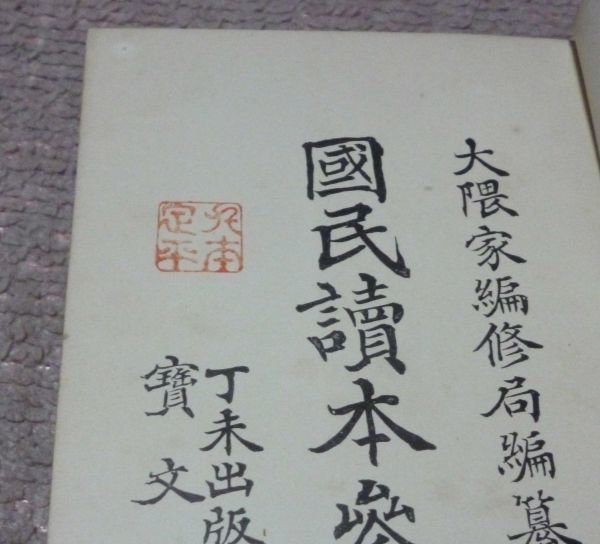 大隈家編修局編纂
國民讀本參
丁未出版
寶文
本
定平